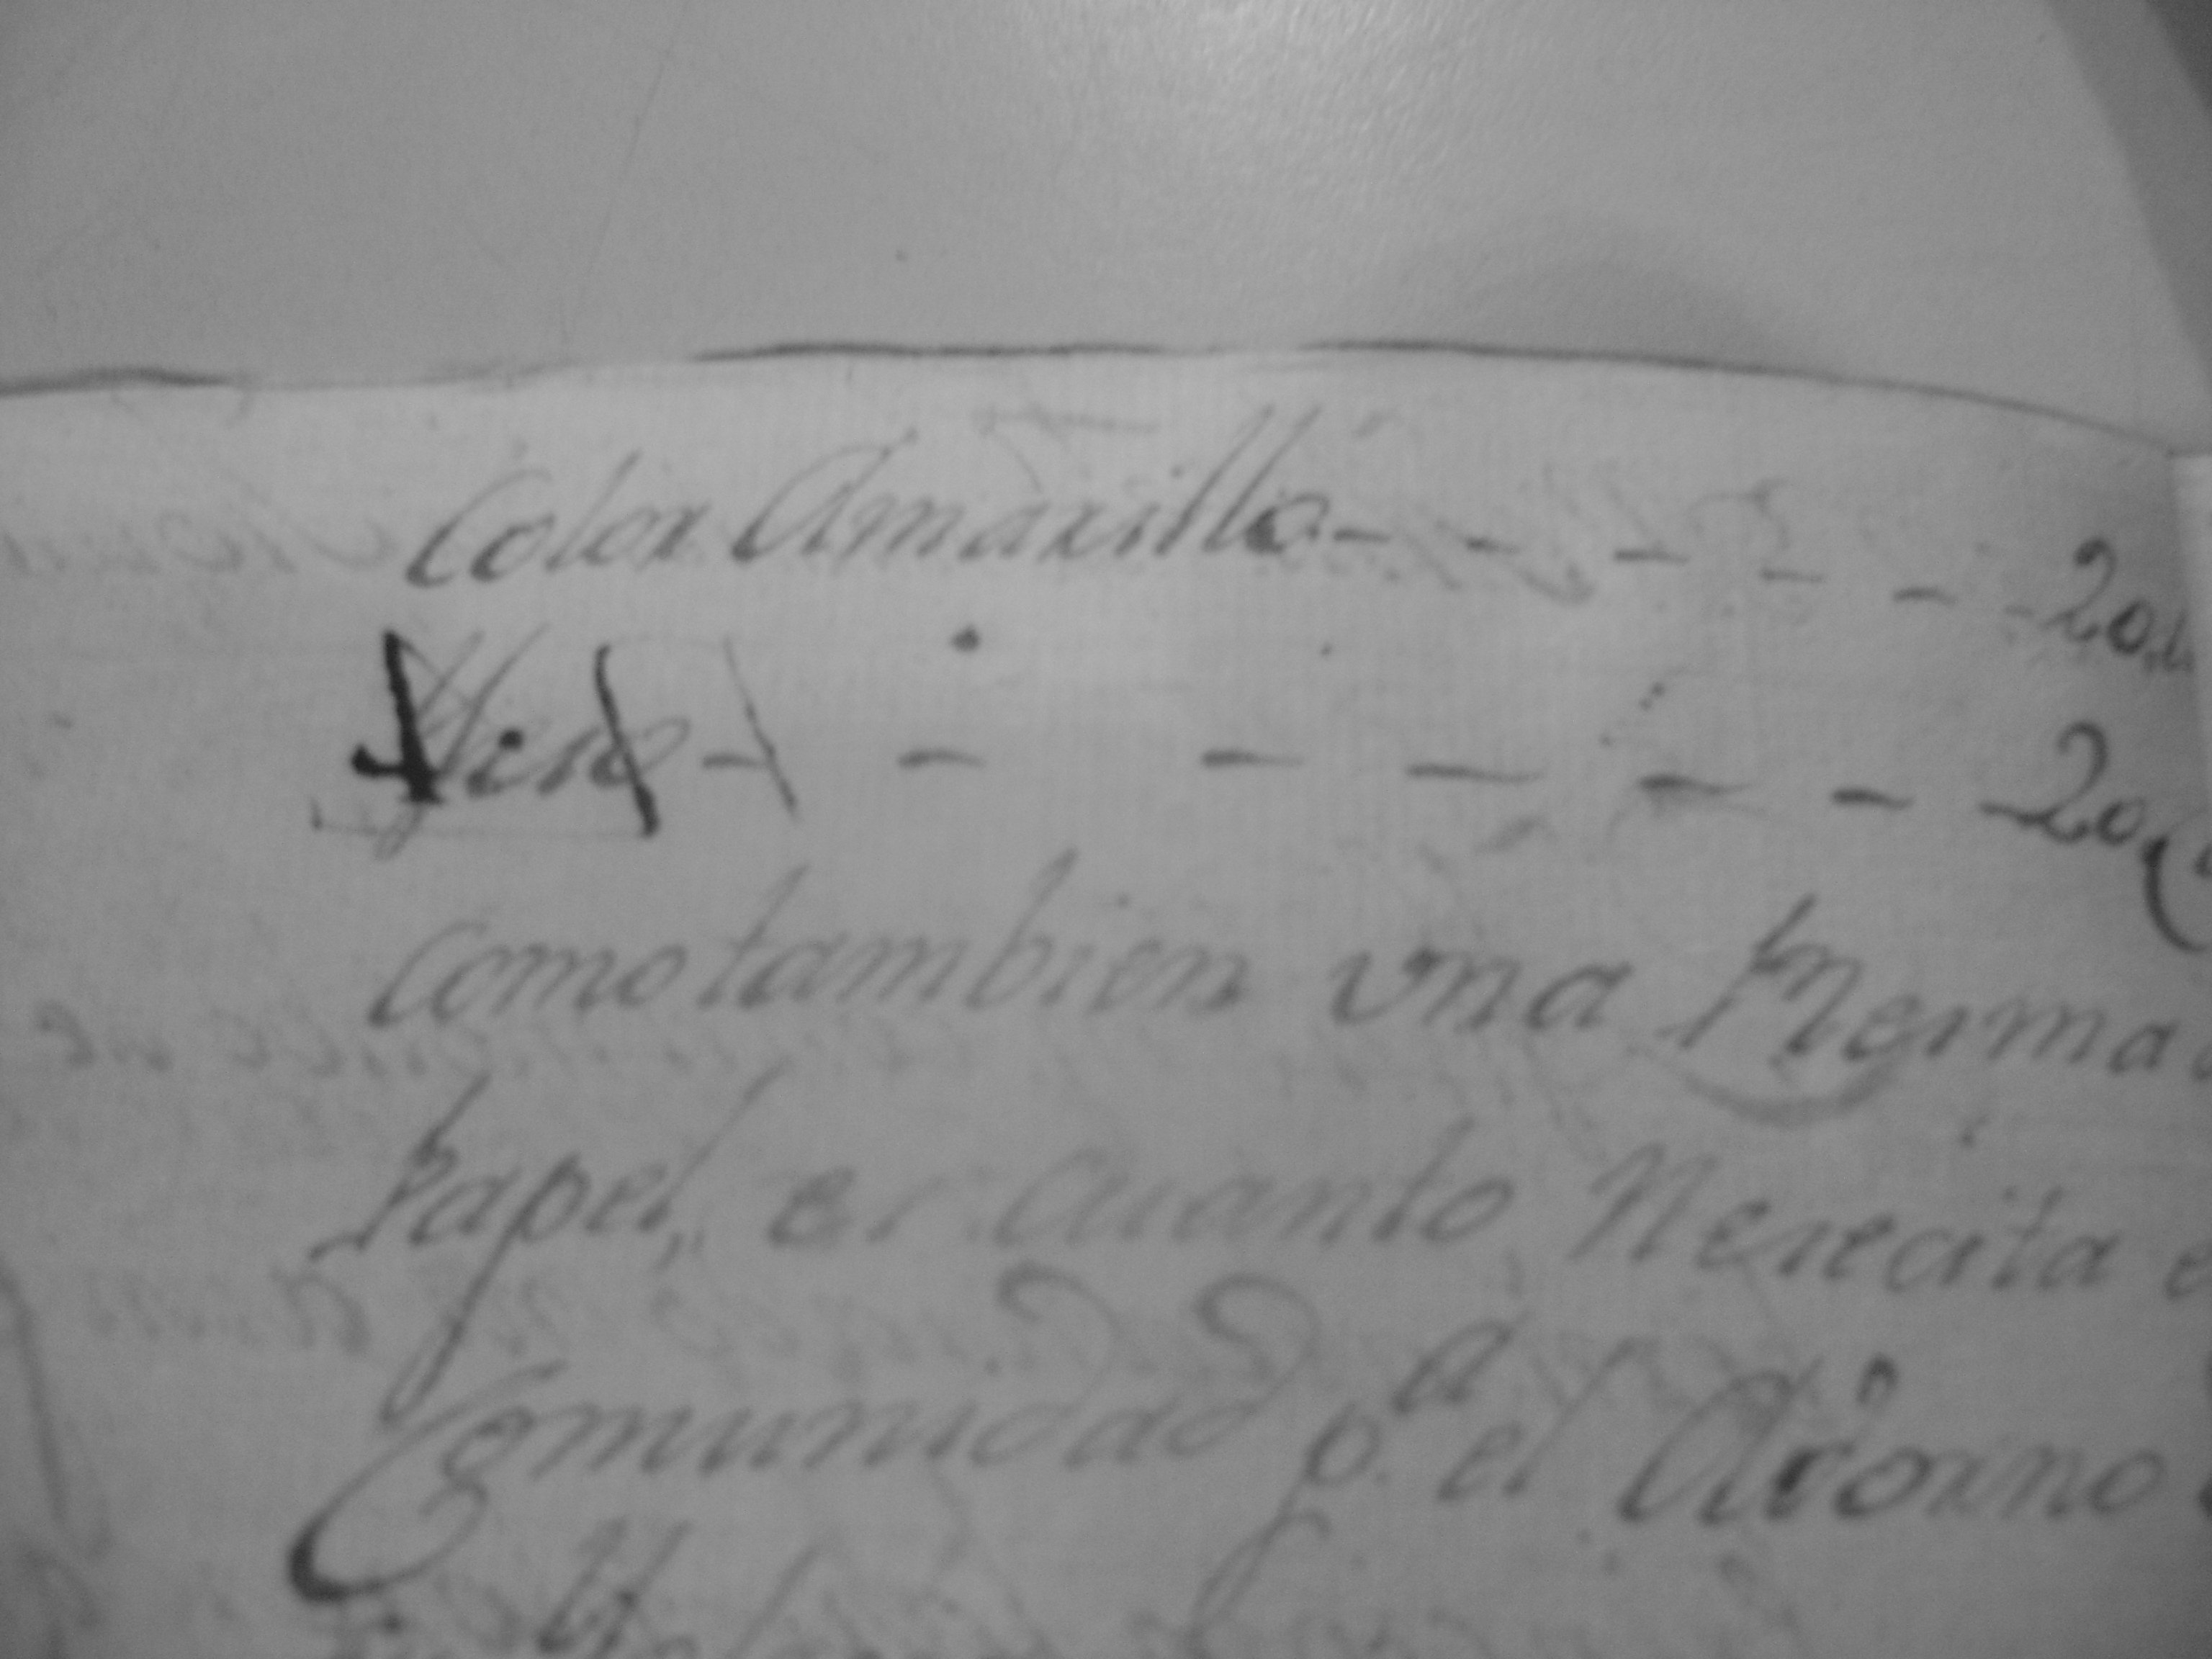 Color Amarillo - - - - - - 20
Yeso - - - - - - - 20
como tambien vna Rerma
Papel, es cuanto Nesecita
Comunidad p.a el Adorno